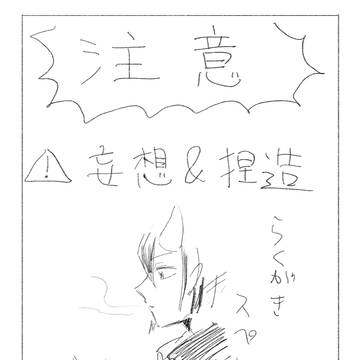 注意
⚠妄想&捏造
らくがき
スペ